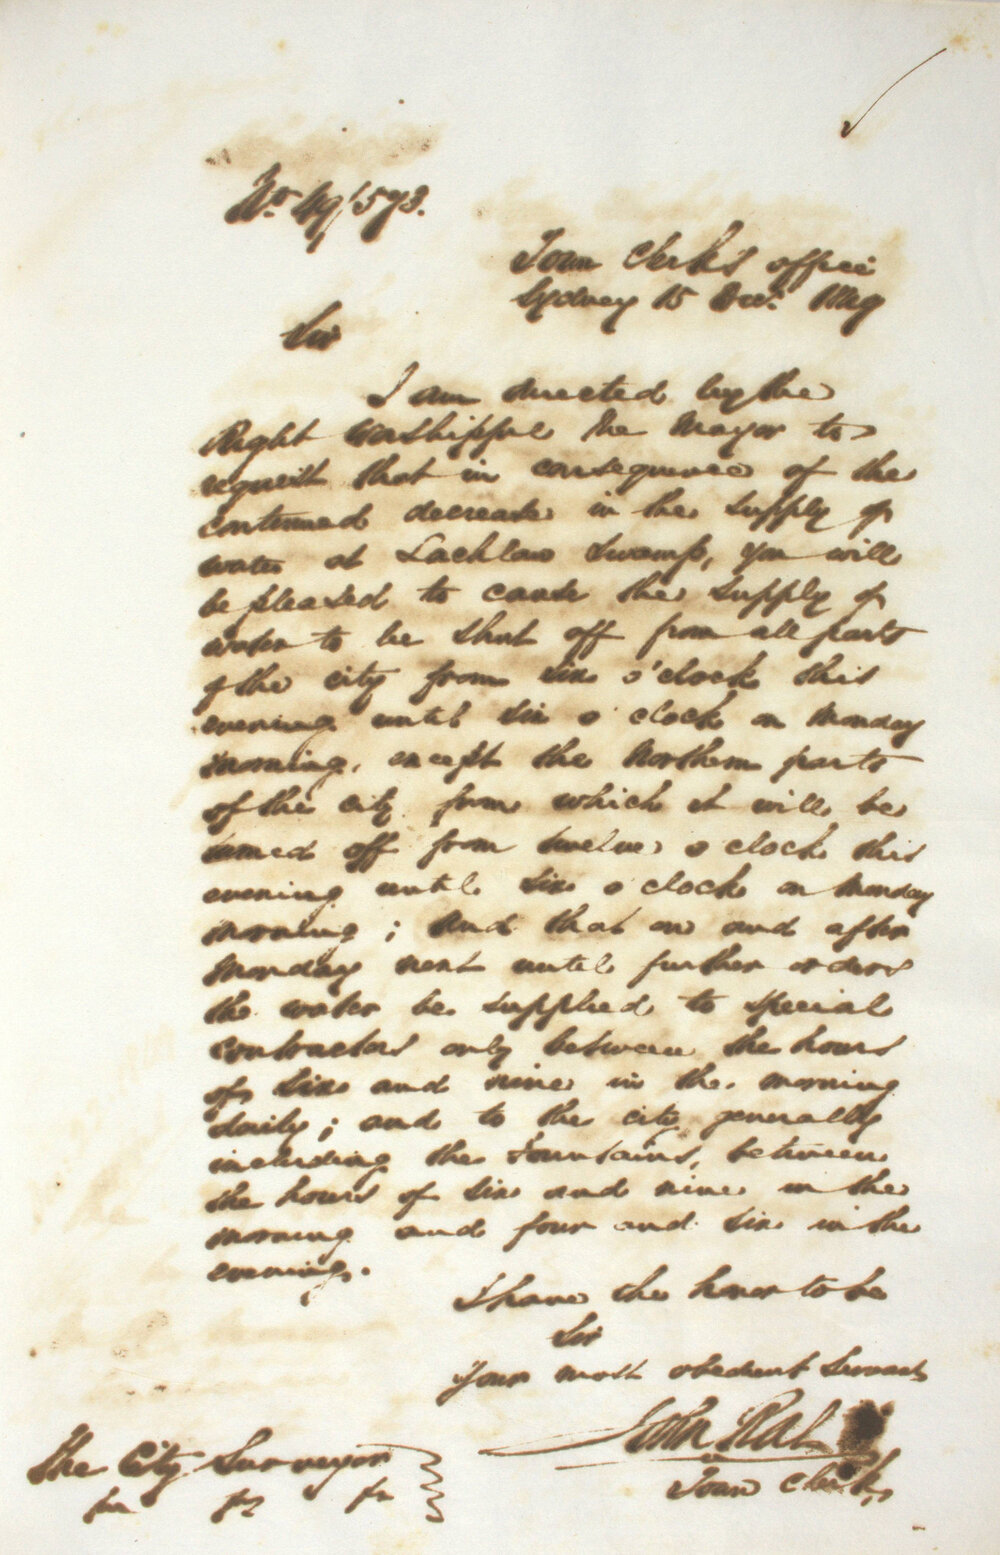 No. 49/573.
Town Clerk's office
Sydney 15 Decr. 1849
Sir
I am directed by the
Right Worshipful the Mayor to
request that in consequence of the
continued decrease in the supply of
water at Lachlan Swamp, you will
be pleased to cause the supply of
water to be shut off from all parts
of the city from six o'clock this
evening until six o'clock on Monday
morning, except the Northern parts
of the city from which it will be
turned off from twelve o'clock this
evening until six o'clock on Monday
morning; and that on and after
Monday next until further orders
the water be supplied to special
contractors only between the hours
of six and nine in the morning
daily; and to the city generally
including the Fountains, between
the hours of six and nine in the
morning and four and six in the
evening.
I have the honor to be
Sir
Your most obedient Servant
John Rae
Town Clerk
The City Surveyor